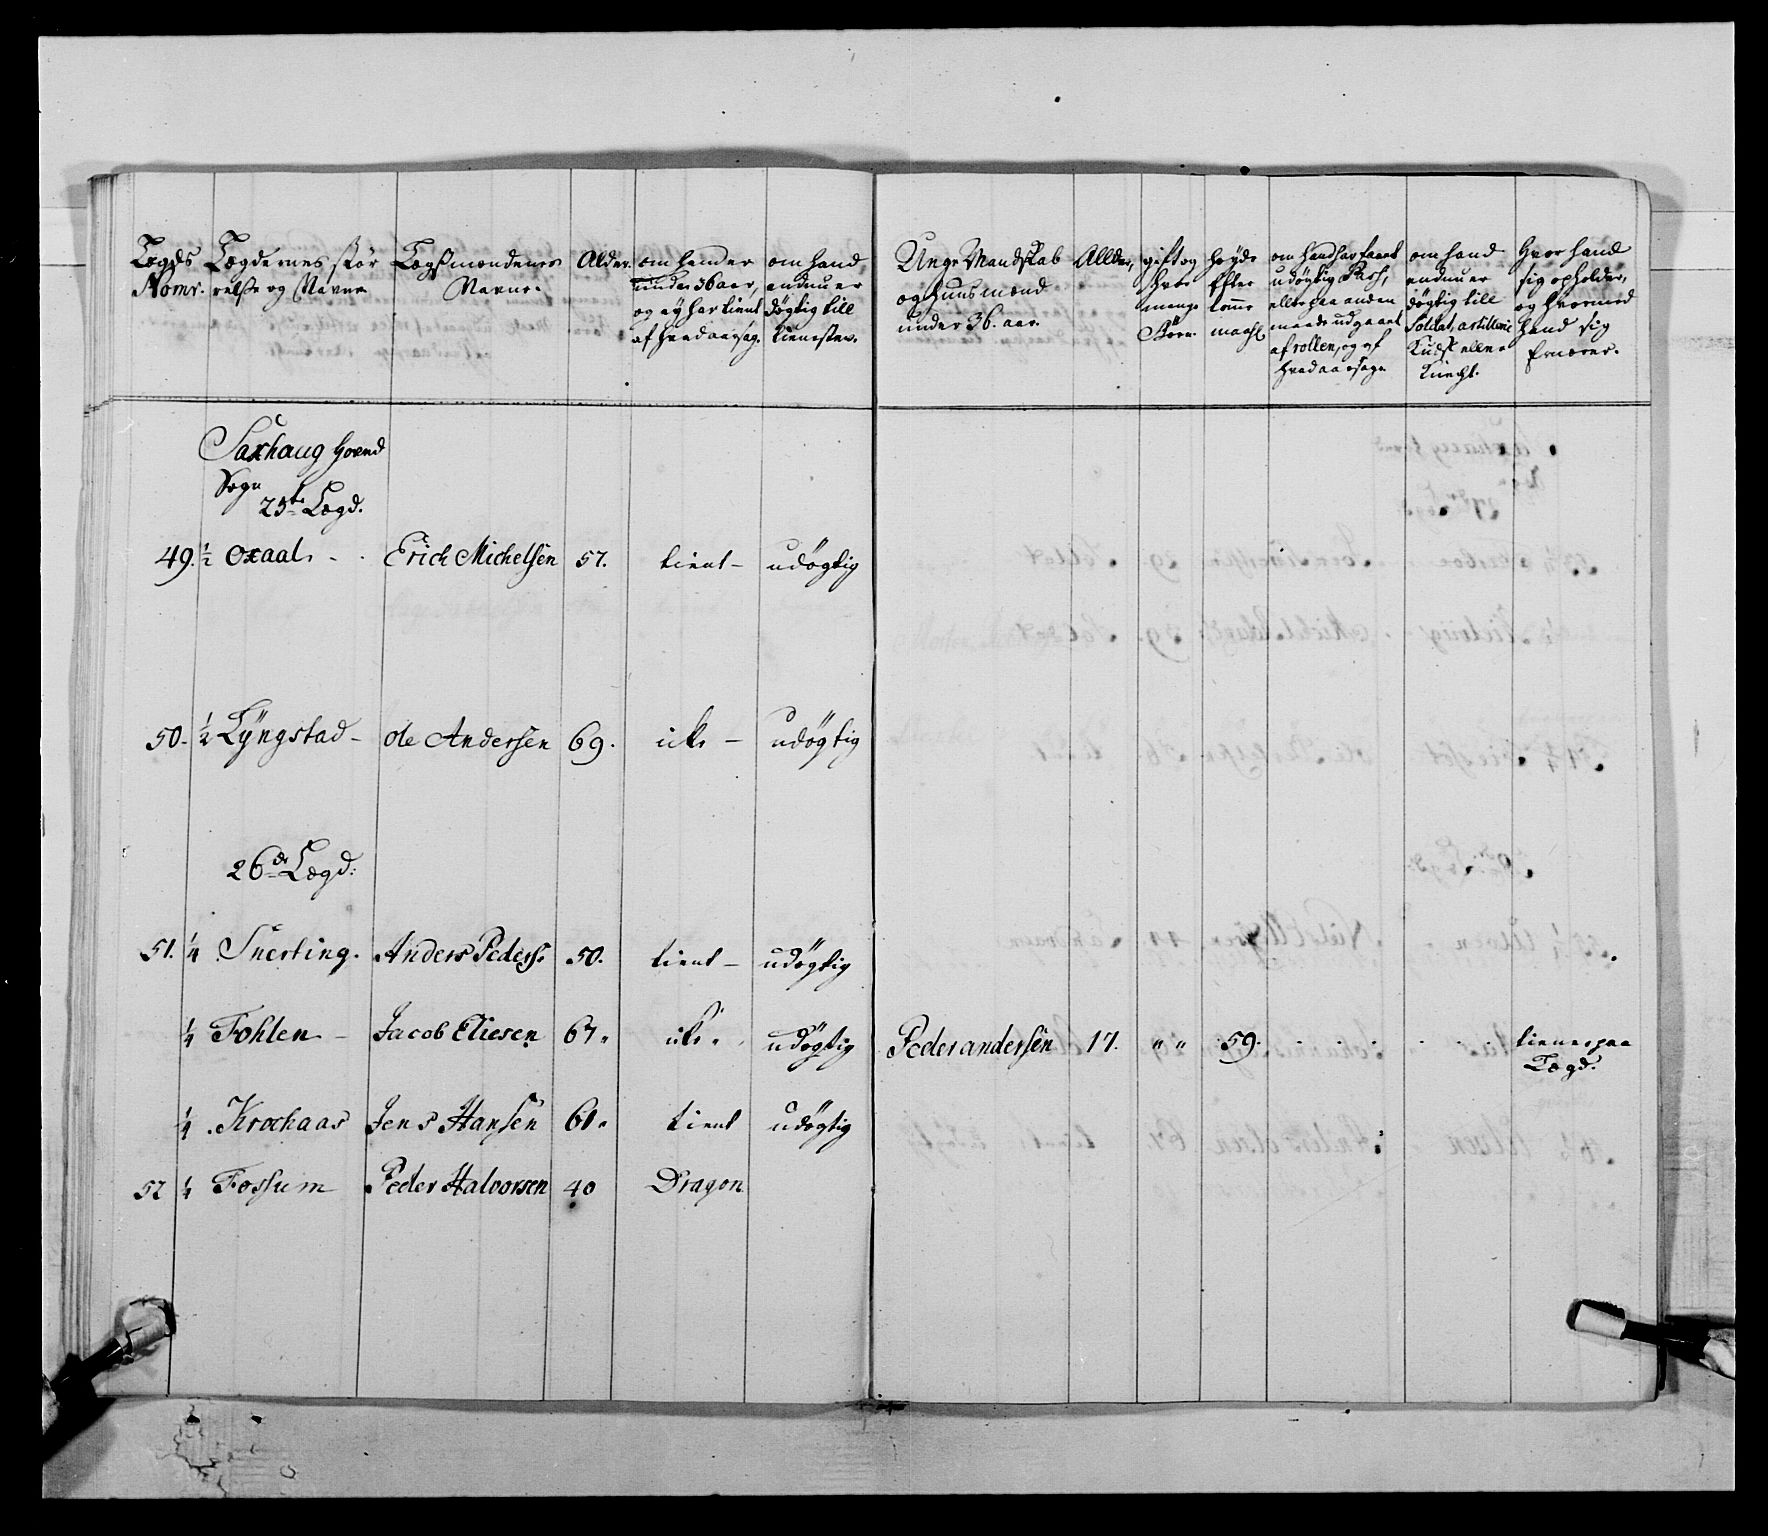 Lægds Nomr.
Lægdernes stør relse og Navne
Lægsmændenes Navne.
Alder.
om hand er under 36 aar, og ey har tient af hvad aarsag.
om hand endnu er døgtig till tienesten.
Unge Mandskab og Huusmænd under 36. aar.
Allder,
gift og hvor mange Børn
høyde Efter tomme maahl
om hand har faaet udøgtig Pash, eller paa anden maade udgaaet af rollen, og af hvad aarsag
om hand endnu er døgtig till Soldat, artillerie Kudsk eller Knecht.
hvor hand sig opholder, og hvormed hand sig Ernærer.
Saxhaug hoved
Sogn
25te Lægd.
49. ½ Oxaal - . Erich Michelsen 57. tient - udøgtig
50. ½ Lÿngstad - ole Andersen 69. ike - udøgtig
26de Lægd:
51. ¼ Snerting. Anders Peders: 50. tient - udøgtig
¼ Fohlen - Jacob Eliesen 67. ike. udøgtig Peder andersen 17. " " 59. tiener paa
Lægd.
¼ Krochaas Jens Hansen 61. tient udøgtig
52 ¼ Fossum Peder Halvorsen 40 Dragon